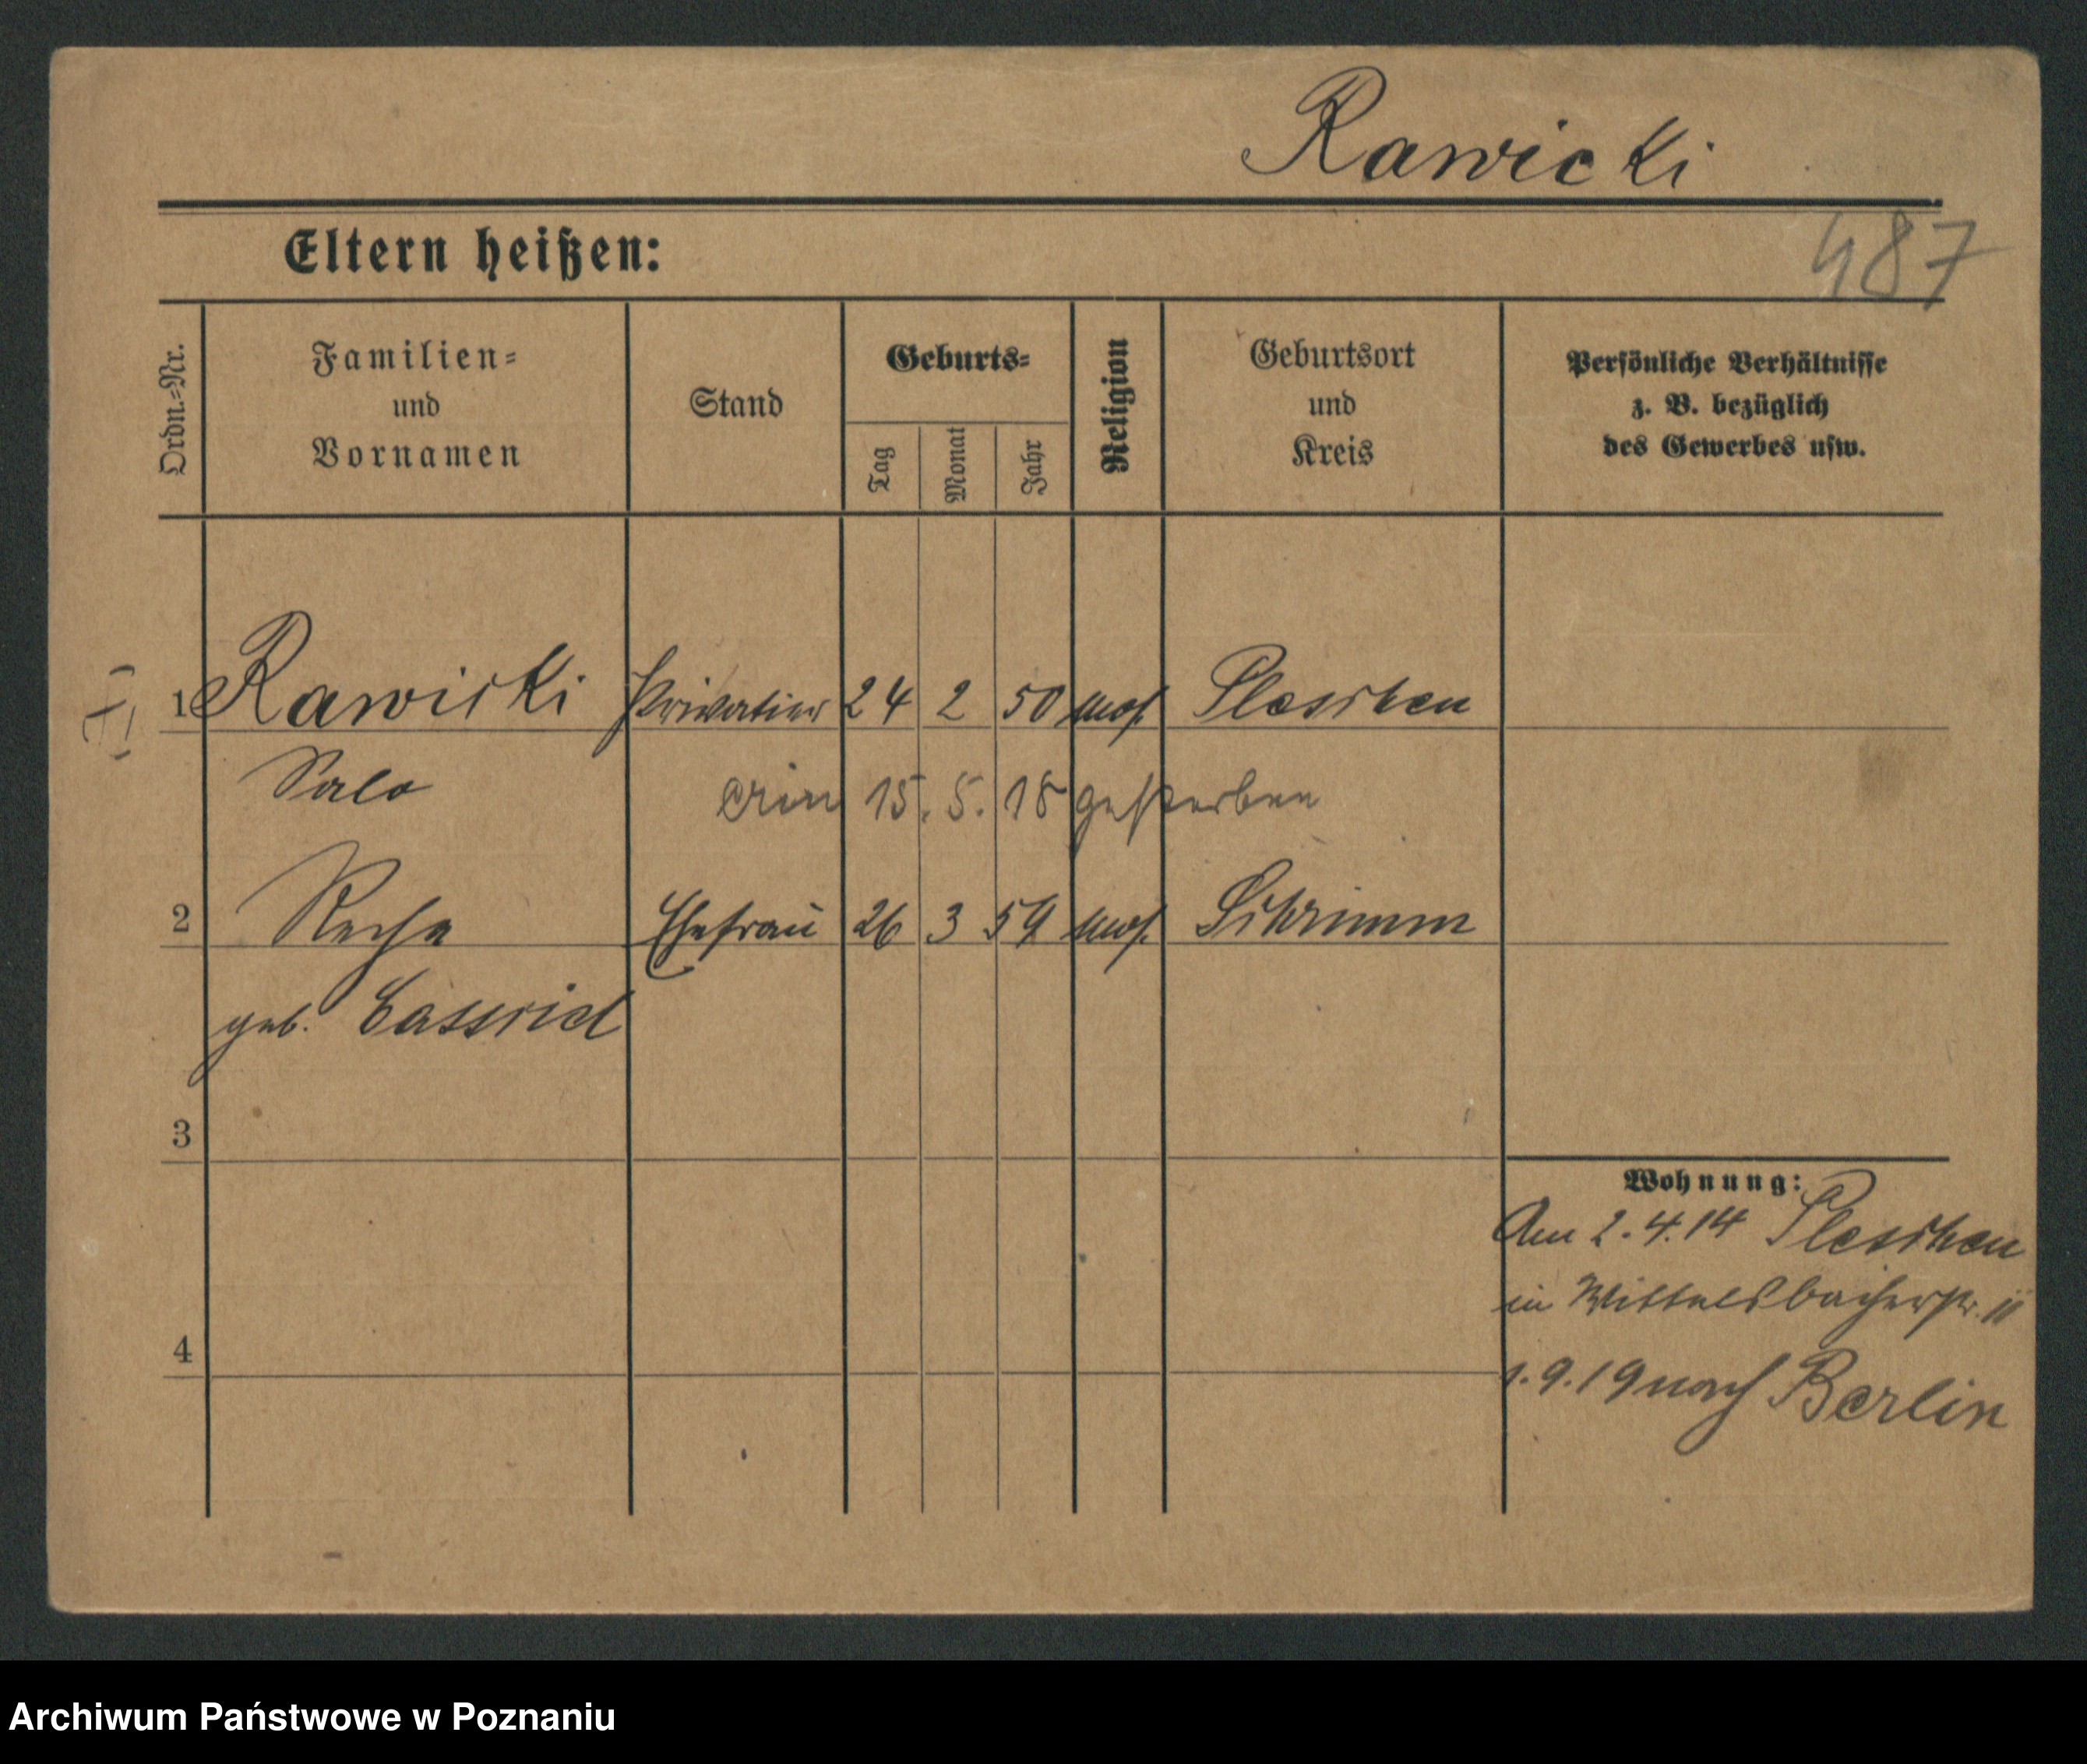 Rawicki
487
Eltern heißen:
Ordn.=Nr.
Familien=
und
Vornamen
Stand
Geburts=
Tag
Monat
Jahr
Religion
Geburtsort
und
Kreis
Persönliche Verhältnisse
z. B. bezüglich
des Gewerbes usw.
1 Rawicki Privatier 24 2 50 mos. Pleschen
Salo
15. 5. 18 gestorben
2 Recha Ehefrau 26 3 59 mos. Schrimm
geb. Cassriel
3
4
Wohnung:
Am 2.4.14 Pleschen
in Wittelsbacherstr. 11
1.9.19 nach Berlin
Archiwum Państwowe w Poznaniu